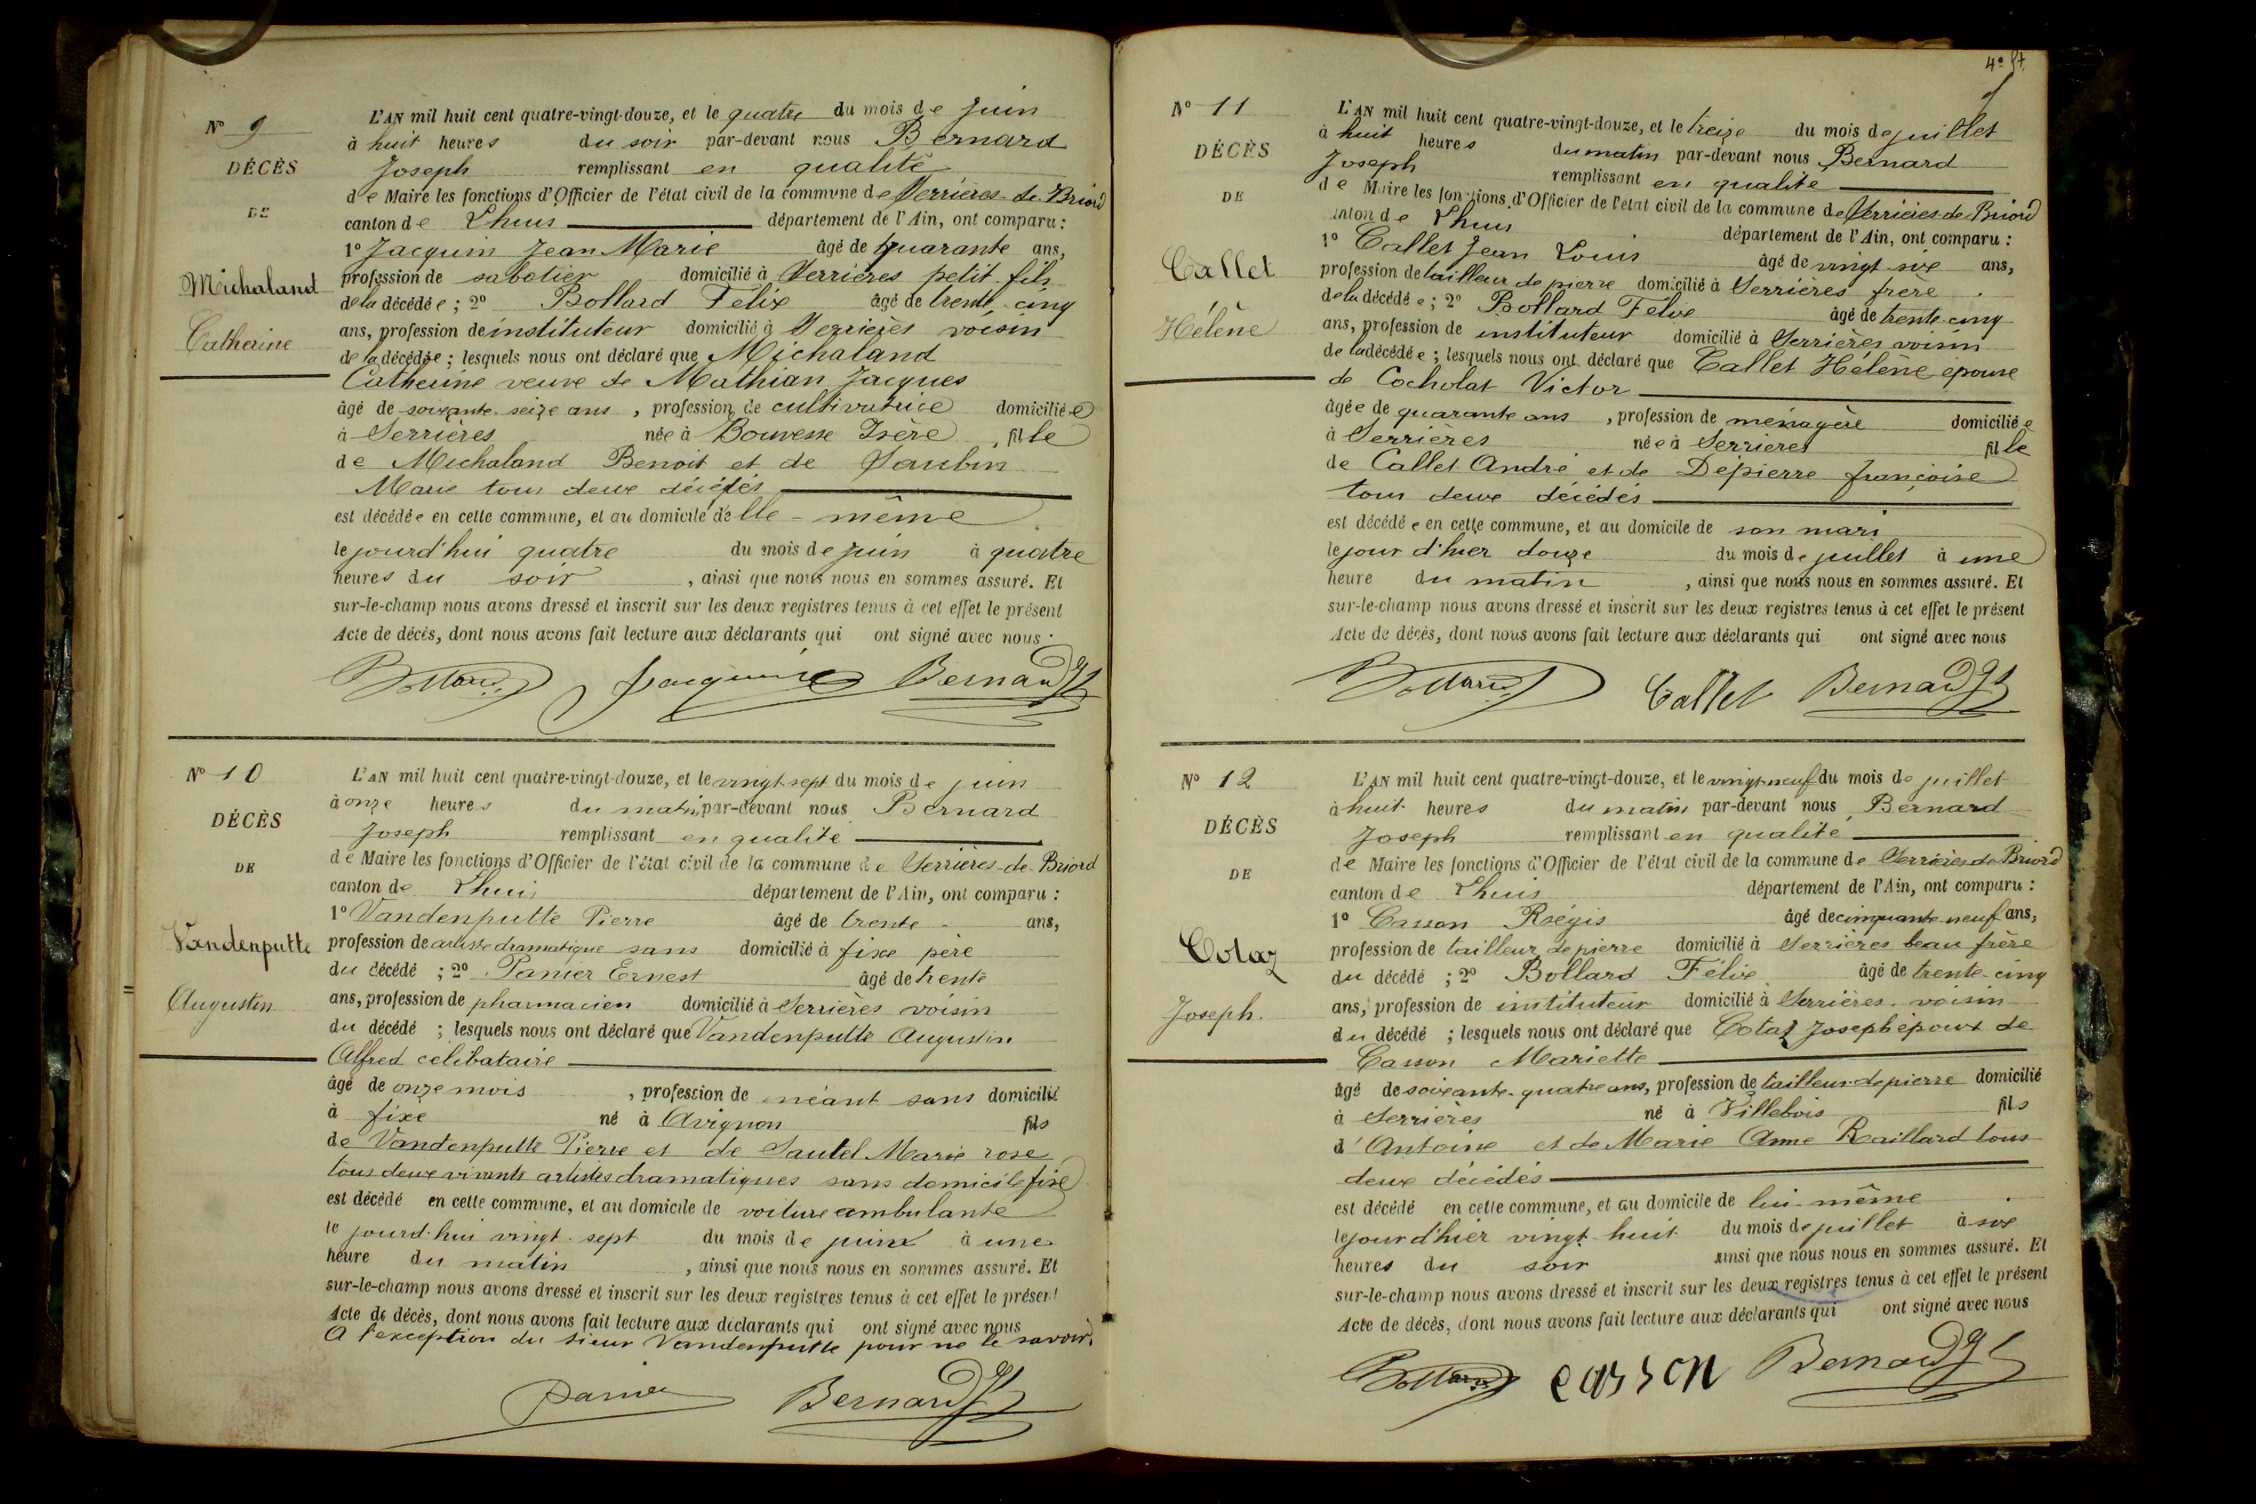 N° 9
DÉCÈS
DE
Michaland
Catherine
L'AN mil huit cent quatre-vingt-douze, et le quatre du mois de juin
à huit heures du soir par-devant nous Bernard
Joseph remplissant en qualité
de Maire les fonctions d'Officier de l'état civil de la commune de Serrières-de-Briord
canton de Lhuis département de l'Ain, ont comparu :
1° Jacquin Jean Marie âgé de quarante ans,
profession de sabotier domicilié à Serrières petit-fils
de la décédée ; 2° Bollard Félix âgé de trente-cinq
ans, profession de instituteur domicilié à Serrières voisin
de la décédée ; lesquels nous ont déclaré que Michaland
Catherine veuve de Mathian Jacques
âgé de soixante-seize ans, profession de cultivatrice domiciliée
à Serrières née à Bouvesse Isère, fille
de Michaland Benoit et de Saubin
Marie tous deux décédés
est décédée en cette commune, et au domicile d'elle-même
le jourd'hui quatre du mois de juin à quatre
heures du soir, ainsi que nous nous en sommes assuré. Et
sur-le-champ nous avons dressé et inscrit sur les deux registres tenus à cet effet le présent
Acte de décès, dont nous avons fait lecture aux déclarants qui ont signé avec nous.
Bollard Jacquin Bernard
N° 10
DÉCÈS
DE
Vandenputte
Augustin
L'AN mil huit cent quatre-vingt-douze, et le vingt-sept du mois de juin
à onze heures du matin par-devant nous Bernard
Joseph remplissant en qualité
de Maire les fonctions d'Officier de l'état civil de la commune de Serrières-de-Briord
canton de Lhuis département de l'Ain, ont comparu :
1° Vandenputte Pierre âgé de trente ans,
profession de artiste dramatique sans domicilié à fixe père
du décédé ; 2° Panier Ernest âgé de trente
ans, profession de pharmacien domicilié à Serrières voisin
du décédé ; lesquels nous ont déclaré que Vandenputte Augustin
Alfred célibataire
âgé de onze mois, profession de néant sans domicilié
à fixe né à Avignon fils
de Vandenputte Pierre et de Sautel Marie rose
tous deux vivants artistes dramatiques sans domicile fixe
est décédé en cette commune, et au domicile de voiture ambulante
le jourd'hui vingt-sept du mois de juin à une
heure du matin, ainsi que nous nous en sommes assuré. Et
sur-le-champ nous avons dressé et inscrit sur les deux registres tenus à cet effet le présent
Acte de décès, dont nous avons fait lecture aux déclarants qui ont signé avec nous
A l'exception du sieur Vandenputte pour ne le savoir.
Panier Bernard
4e
N° 11
DÉCÈS
DE
Callet
Hélène
L'AN mil huit cent quatre-vingt-douze, et le treize du mois de juillet
à huit heures du matin par-devant nous Bernard
Joseph remplissant en qualité
de Maire les fonctions d'Officier de l'état civil de la commune de Serrières-de-Briord
canton de Lhuis département de l'Ain, ont comparu :
1° Callet Jean Louis âgé de vingt-six ans,
profession de tailleur de pierre domicilié à Serrières frère
de la décédée ; 2° Bollard Félix âgé de trente-cinq
ans, profession de instituteur domicilié à Serrières voisin
de la décédée ; lesquels nous ont déclaré que Callet Hélène épouse
de Cocholat Victor
âgée de quarante ans, profession de ménagère domiciliée
à Serrières née à Serrières fille
de Callet André et de Dépierre françoise
tous deux décédés
est décédée en cette commune, et au domicile de son mari
le jour d'hier douze du mois de juillet à une
heure du matin, ainsi que nous nous en sommes assuré. Et
sur-le-champ nous avons dressé et inscrit sur les deux registres tenus à cet effet le présent
Acte de décès, dont nous avons fait lecture aux déclarants qui ont signé avec nous
Bollard Callet Bernard
N° 12
DÉCÈS
DE
Cotaz
Joseph.
L'AN mil huit cent quatre-vingt-douze, et le vingt-neuf du mois de juillet
à huit heures du matin par-devant nous Bernard
Joseph remplissant en qualité
de Maire les fonctions d'Officier de l'état civil de la commune de Serrières-de-Briord
canton de Lhuis département de l'Ain, ont comparu :
1° Casson Régis âgé de cinquante-neuf ans,
profession de tailleur de pierre domicilié à Serrières beau frère
du décédé ; 2° Bollard Félix âgé de trente-cinq
ans, profession de instituteur domicilié à Serrières voisin
du décédé ; lesquels nous ont déclaré que Cotaz Joseph époux de
Casson Mariette
âgé de soixante-quatre ans, profession de tailleur de pierre domicilié
à Serrières né à Villebois fils
d'Antoine et de Marie Anne Raillard tous
deux décédés
est décédé en cette commune, et au domicile de lui-même
le jour d'hier vingt-huit du mois de juillet à six
heures du soir ainsi que nous nous en sommes assuré. Et
sur-le-champ nous avons dressé et inscrit sur les deux registres tenus à cet effet le présent
Acte de décès, dont nous avons fait lecture aux déclarants qui ont signé avec nous
Bollard casson Bernard